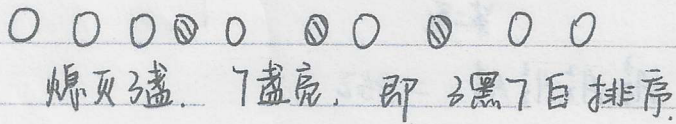 熄灭3盏. 7盏亮. 即 3黑7白排序.